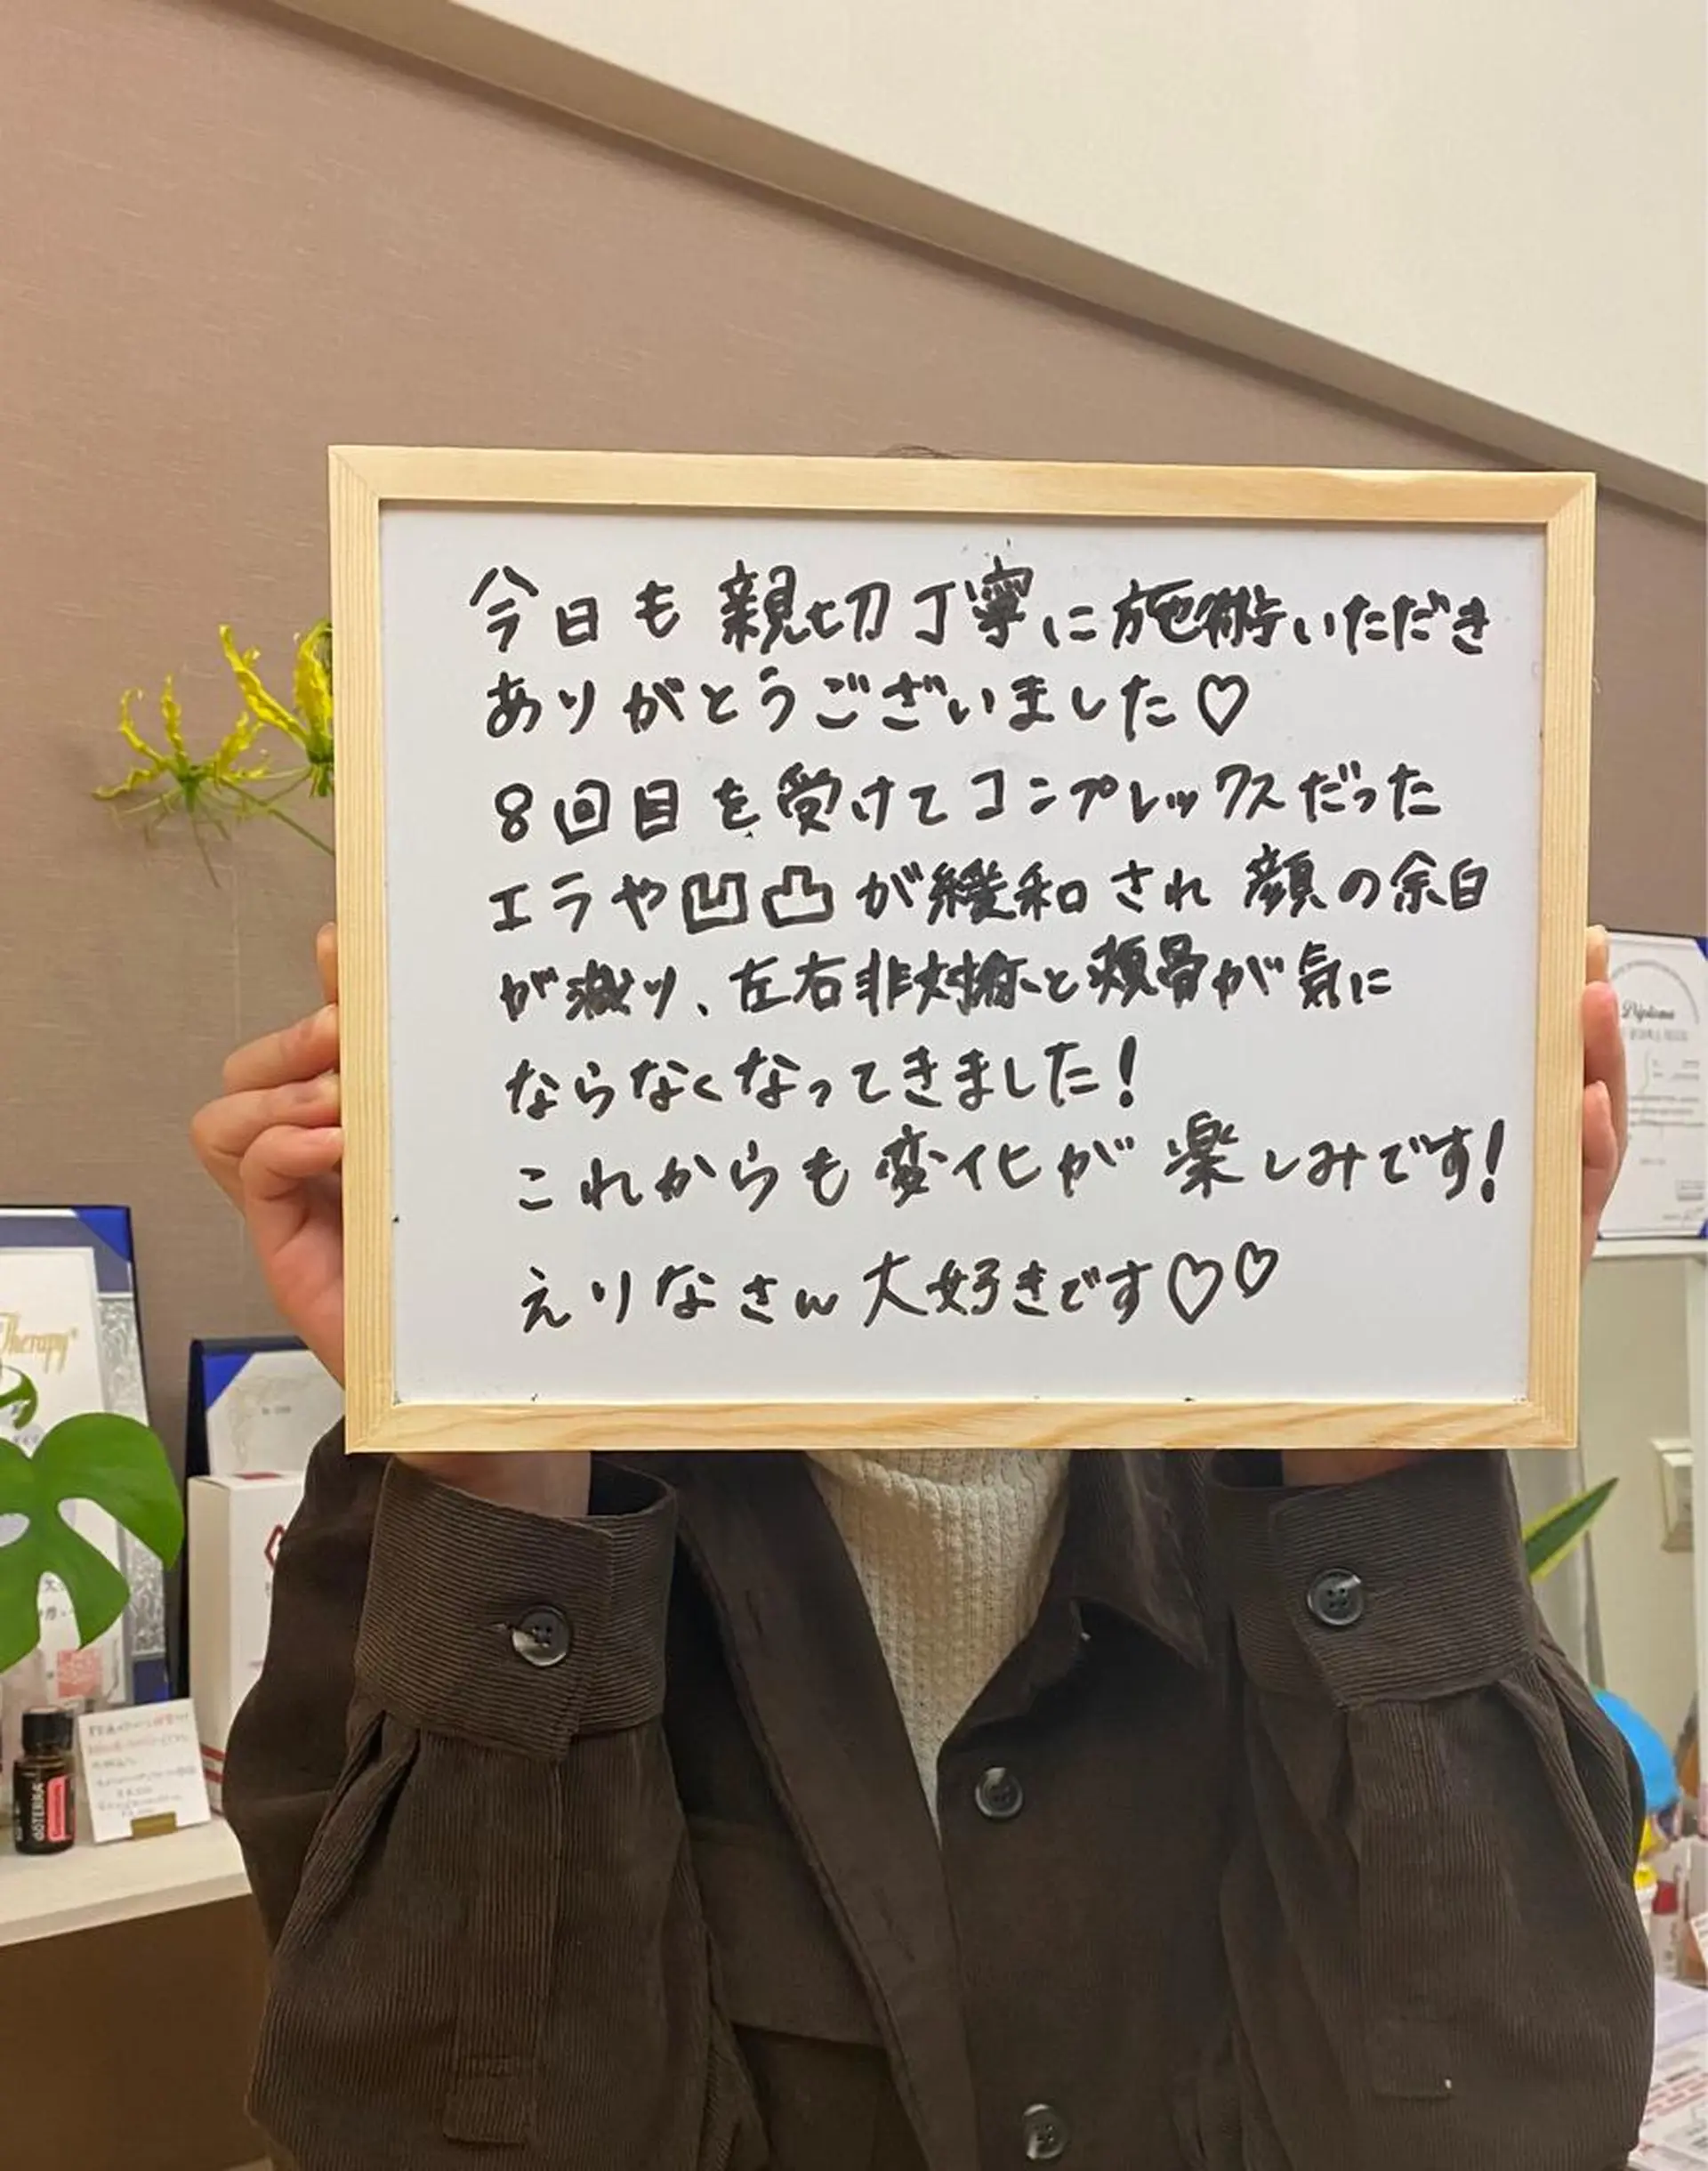 今日も親切丁寧に施術いただき
ありがとうございました♡
8回目を受けてコンプレックスだった
エラや凹凸が緩和され顔の余白
が減り、左右非対称と頬骨が気に
ならなくなってきました!
これからも変化が楽しみです!
えりなさん大好きです♡♡
Diploma
Therapy
dōTERRA